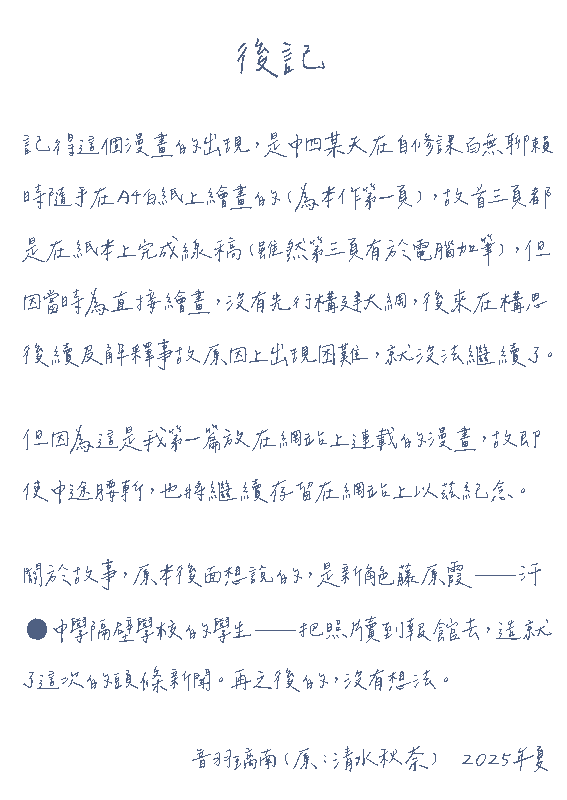 後記
記得這個漫畫的出現，是中四某天在自修課百無聊賴
時隨手在A4白紙上繪畫的（為本作第一頁），故首三頁都
是在紙本上完成線稿（雖然第三頁有於電腦加筆），但
因當時為直接繪畫，沒有先行構建大綱，後來在構思
後續及解釋事故原因上出現困難，就沒法繼續了。
但因為這是我第一篇放在網站上連載的漫畫，故即
使中途腰斬，也將繼續存留在網站上以茲紀念。
關於故事，原本後面想說的，是新角色藤原霞——汙
●中學隔壁學校的學生——把照片賣到報館去，造就
了這次的頭條新聞。再之後的，沒有想法。
音羽璃南（原：清水秋奈） 2025年夏